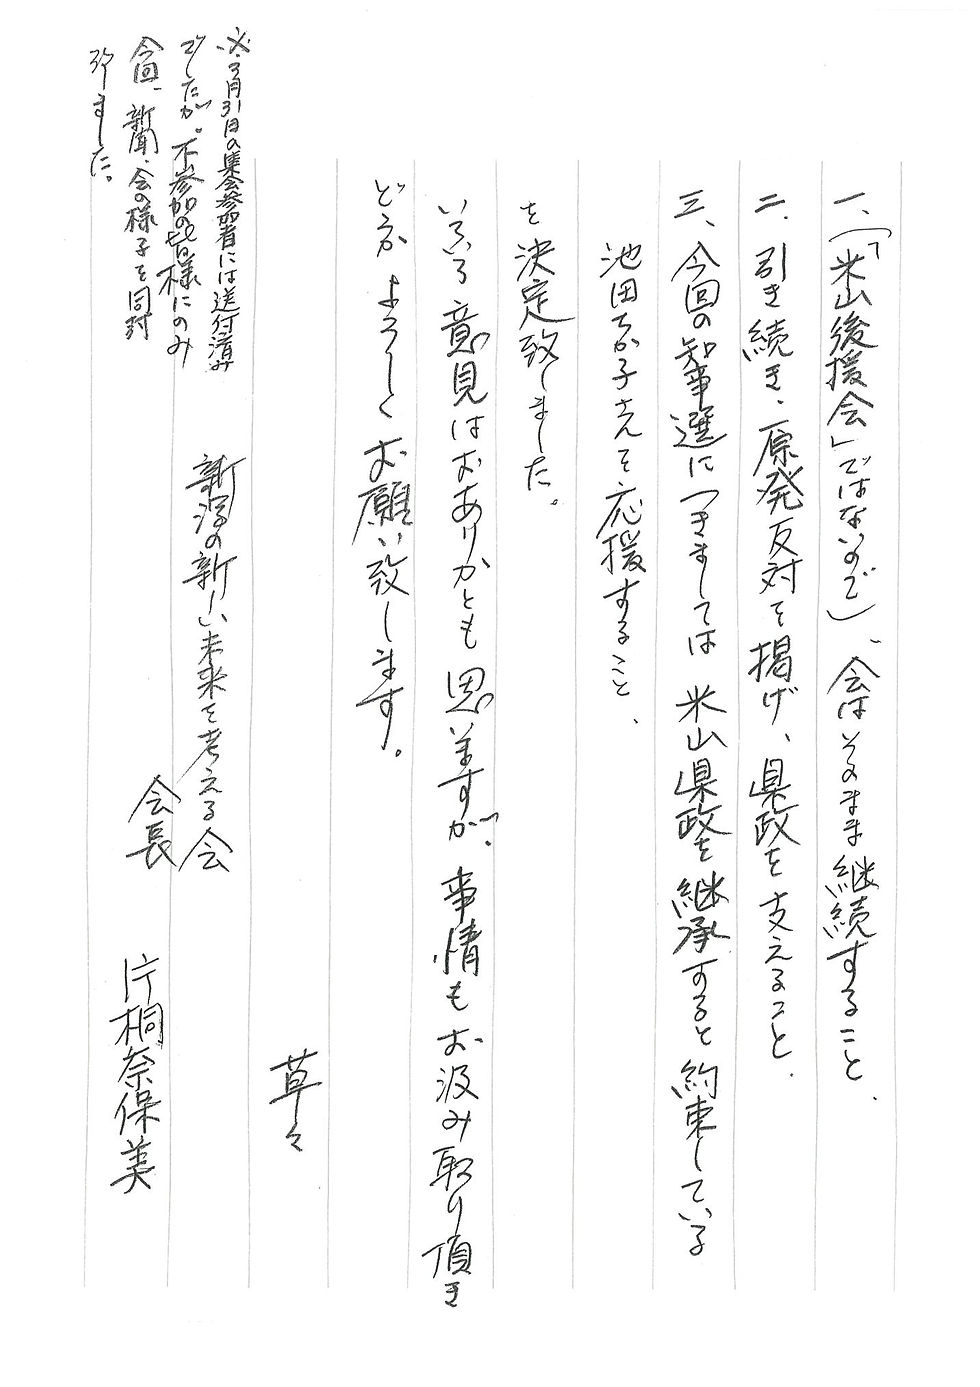 一、(「米山後援会」ではないので)、会はそのまま継続すること、
二、引き続き、原発反対を掲げ、県政を支えること、
三、今回の知事選につきましては米山県政を継承すると約束している
池田ちか子さんを応援すること、
を決定致しました。
いろいろ意見はおありかとも思いますが、事情もお汲み取り頂き
どうかよろしくお願い致します。
草々
新潟の新しい未来を考える会
会長 片桐奈保美
※3月31日の集会参加者には送付済み
でしたが。不参加の皆様にのみ
今回、新聞、会の様子を同封
致ました。